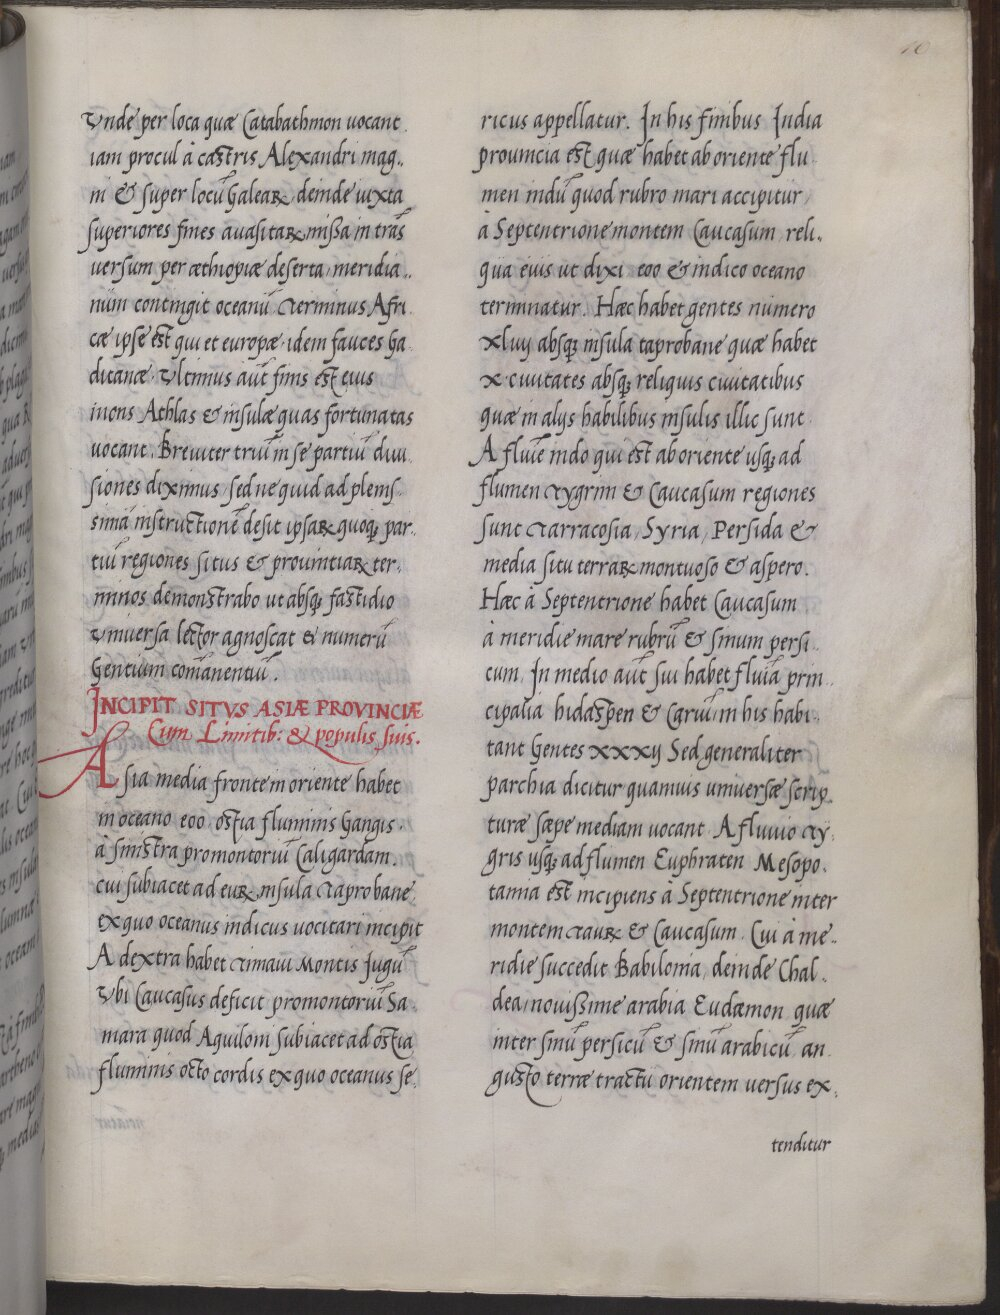 10
Vnde per loca quæ Catabathmon uocant.
iam procul à castris Alexandri mag..
ni & super locū Galeaꝝ, deinde iuxta
superiores fines auasitaꝝ, missa in trās
uersum per æthiopiæ deserta, meridia..
num contingit oceanū Terminus Afri.
cæ ipse est qui et europæ, idem fauces Ga.
ditanæ. Vltimus aūt finis est eius
mons Athlas & insulæ quas fortunatas
uocant. Breuiter triū in se partiū diui.
siones diximus, sed ne quid ad plenis.
simā instructionē desit ipsaꝝ quoqꝫ par.
tiū regiones situs & prouintiaꝝ ter.
minos demonstrabo ut absqꝫ fastidio
Vniuersa lector agnoscat & numerū
Gentium com̄anentiū.
INCIPIT SITVS ASIÆ PROVINCIÆ
Cum Limitib: & populis suis.
Asia media fronte in oriente habet
in oceano eoo ostia fluminis Gangis.
à sinistra promontoriū Caligardam.
cui subiacet ad euꝝ insula Taprobane,
ex quo oceanus indicus uocitari incipit
A dextra habet Timaui Montis Iugū
Vbi Caucasus deficit promontoriū Sa.
mara quod Aquiloni subiacet ad ostia
fluminis octo cordis ex quo oceanus se.
ricus appellatur. In his finibus India
prouincia est quæ habet ab oriente flu
men indū quod rubro mari accipitur,
à Septentrione montem Caucasum, reli..
qua euis ut dixi eoo & indico oceano
terminatur. Hæc habet gentes numero
xluij absqꝫ insula taprobane quæ habet
x. ciuitates absqꝫ reliquis ciuitatibus
quæ in alijs habilibus insulis illic sunt.
A fluīe indo qui est ab oriente usqꝫ ad
flumen Tygrim & Caucasum regiones
sunt Tarracosia, Syria, Persida &
media situ terraꝝ montuoso & aspero.
Hæc à Septentrione habet Caucasum
à meridie mare rubrū & sinum persi.
cum. In medio aūt sui habet fluīa prin
cipalia hidaspen & Carūm in his habi.
tant Gentes xxxij Sed generaliter
parchia dicitur quamuis uniuersæ scrip.
turæ sæpe mediam uocant. A fluuio Ty.
gris usqꝫ ad flumen Euphraten Mesopo.
tamia est incipiens à Septentrione inter
montem Tauꝝ & Caucasum. Cui à me..
ridie succedit Babilonia, deinde Chal.
dea, nouissime arabia Eudæmon quæ
inter sinū persicū & sinū arabicū, an.
gusto terræ tractu orientem uersus ex.
tenditur